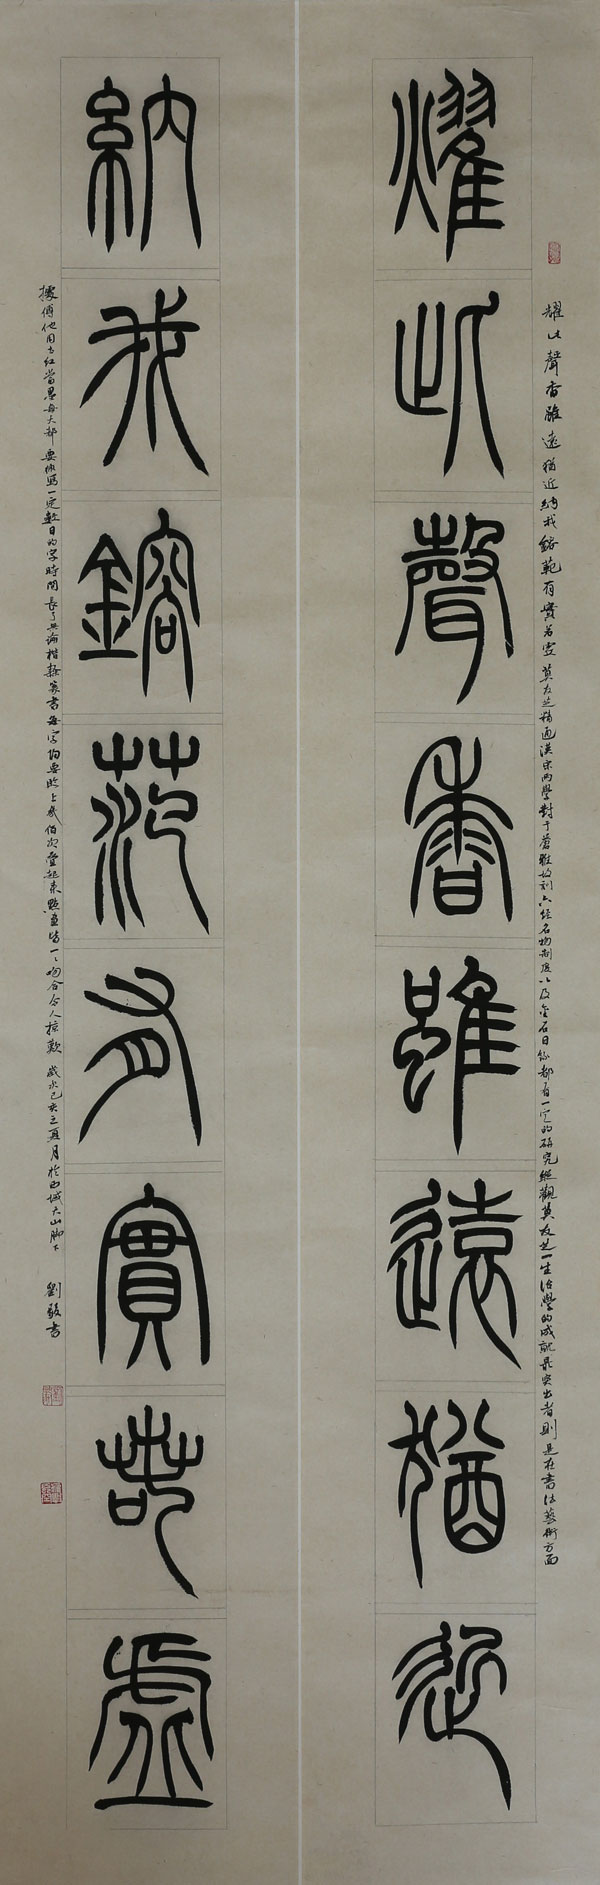 耀此聲香雖遠猶近
耀此聲香雖遠猶近納我鎔範有實若虛莫友芝精通漢宋兩學對于蒼雅故訓六經名物制度以及金石目錄都有一定的研究縱觀莫友芝一生治學的成就最突出者則是在書法藝術方面
納我鎔范有實若虛
據傳他用書紅當墨每天都要依寫一定數目的字時間長了無論楷隸篆書每字均要貼上幾佰次疊起來點畫皆一一吻合令人掠歎歲次己亥之夏月於西城大山腳下
劉駿書